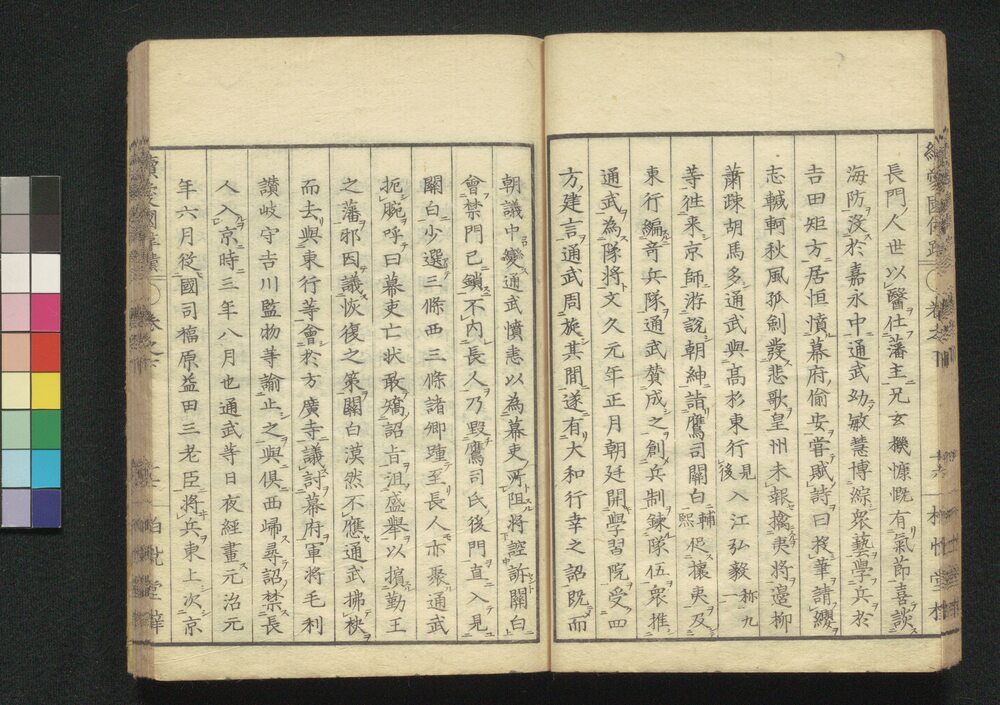 長門ノ人世以醫仕藩主兄玄機慷慨有氣節喜談
海防沒於嘉永中通武幼敏慧博綜衆藝學兵於
吉田矩方居恒憤幕府偷安嘗賦詩曰投筆請纓
志轗軻秋風孤劍發悲歌皇州未報擒夷將邊柳
蕭疎胡馬多通武與高杉東行見後入江弘毅稱九一
等往来京師游說朝紳詣鷹司關白輔熙促攘夷及
東行編奇兵隊通武贊成之創兵制錬隊伍衆推
通武為隊將文久元年正月朝廷開學習院受四
方ノ建言通武周旋其間遂有大和行幸之詔既而
朝議中變通武憤恚以為幕吏所阻將詣訴關白
會禁門已鎖不内長人乃叚鷹司氏後門直入見
關白少選三條西三條諸卿踵至長人亦聚通武
扼腕呼曰幕吏亡状敢矯詔㫖沮盛舉以擯勤王
之藩邪因議恢復之策關白漠然不應通武拂袂
而去與東行等會於方廣寺議討幕府軍將毛利
讃岐守吉川監物等諭止之與倶西歸尋詔禁長
人入京時三年八月也通武等日夜經畫元治元
年六月從國司福原益田三老臣將兵東上次京